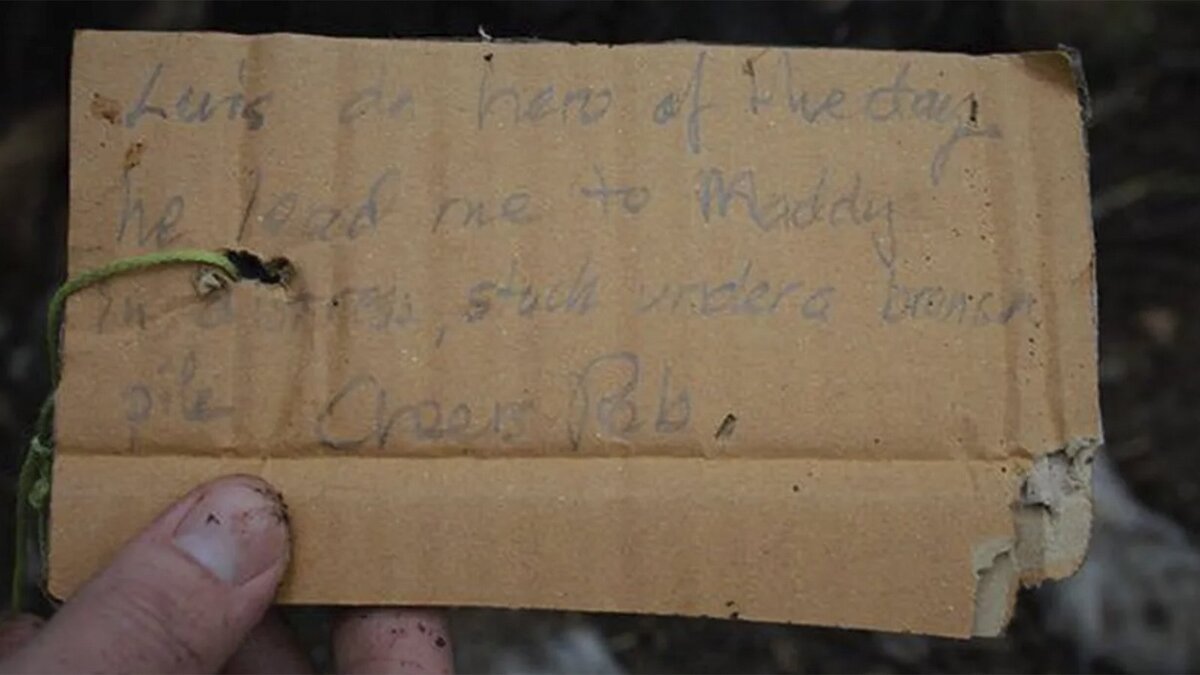 Luis da hero of the day
he lead me to Maddy
in distress, stuck under a bransh
pile Cheers Rob.